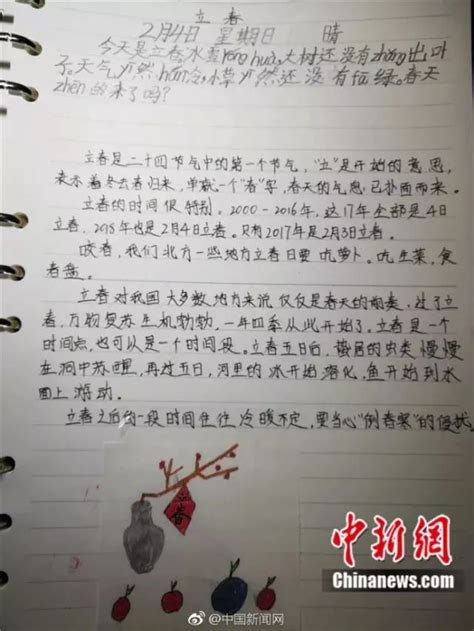 立春
2月4日 星期日 晴
今天是立春,冰雪róng huà,大树还没有zhǎng出叶
子。天气仍然hán冷,小草仍然还没有 绿。春天
zhēn的来了吗?
立春是二十四节气中的第一个节气,"立"是开始的意思,
表示着冬去春归来,单就一个"春"字,春天的气息已扑面而来。
立春的时间很特别。2000-2016年,这17年全部是4日
立春,2018年也是2月4日立春。只有2017年是2月3日立春。
咬春,我们北方一些地方立春日要吃萝卜。吃生菜,食
春盘。
立春对我国大多数地方来说仅仅是春天的前奏。过了立
春,万物复苏生机勃勃,一年四季从此开始了。立春是一个
时间点,也可以是一个时间段。立春五日后,蛰居的虫类慢慢
在洞中苏醒,再过五日,河里的冰开始溶化,鱼开始到水
面上游动。
立春之后的一段时间往往冷暖不定,要当心"倒春寒"的侵扰。
春
中新網
Chinanews.com
@中国新闻网